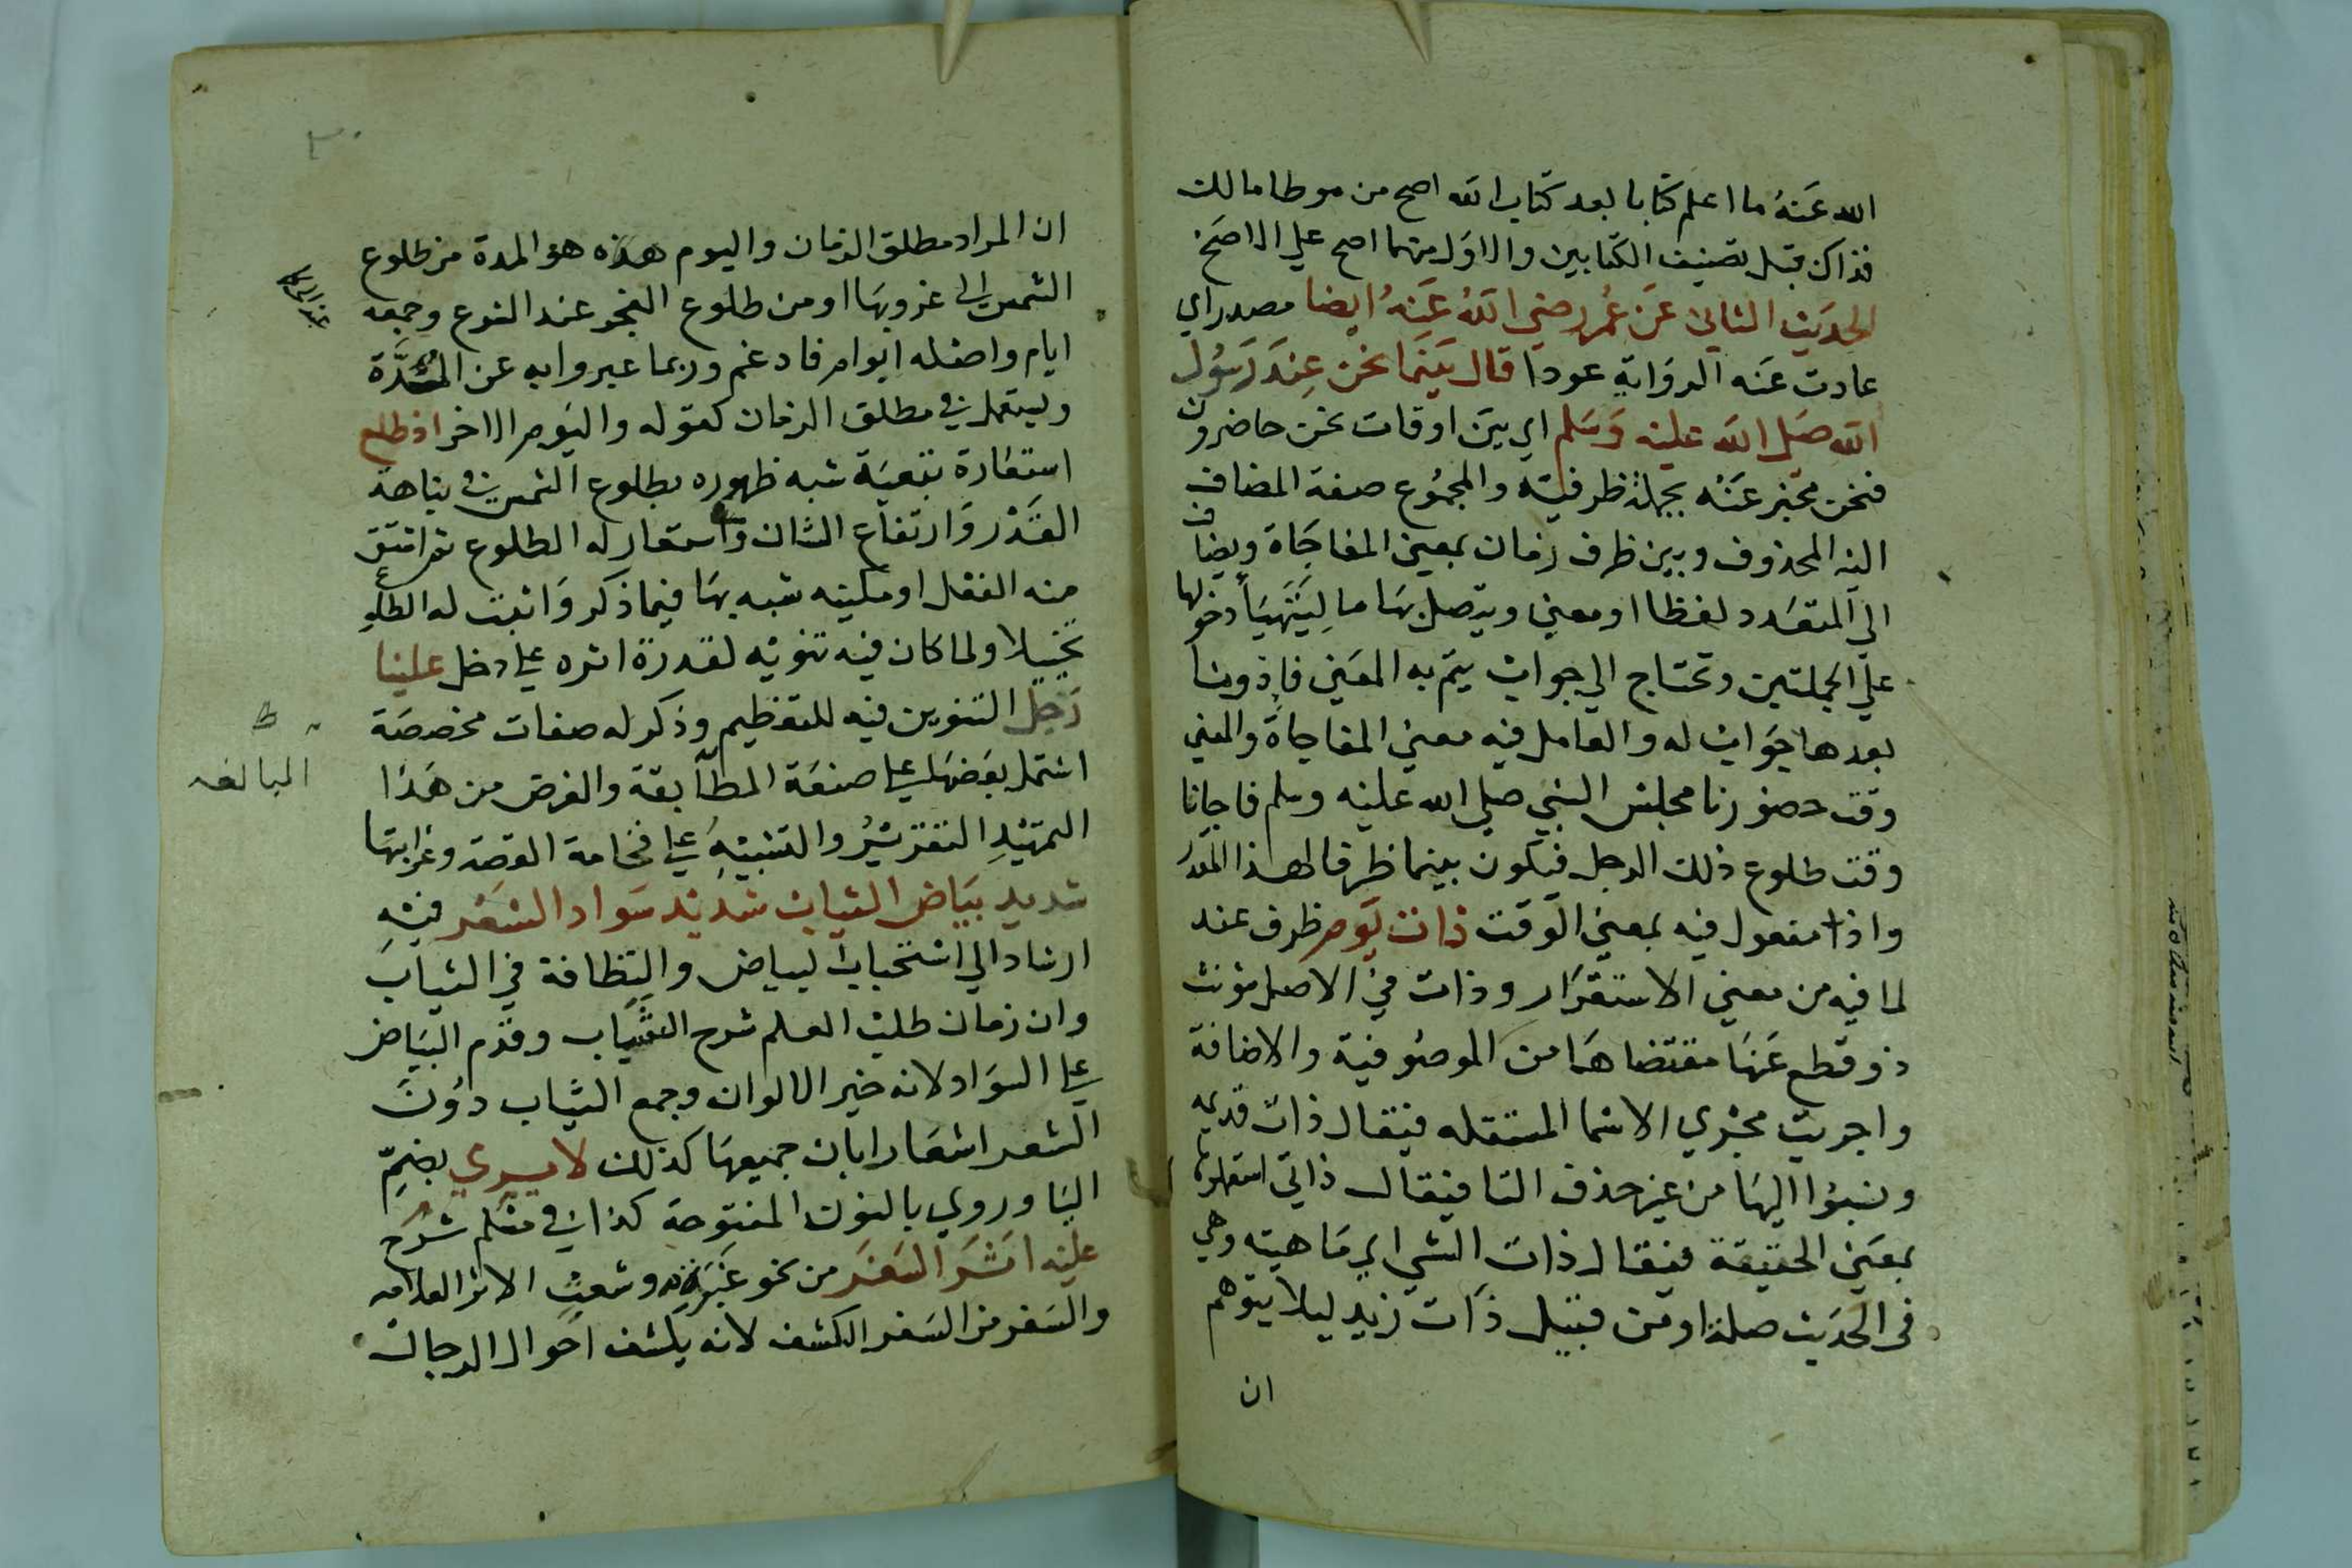 الله عَنهُ ما اعلم كتابا بعد كتاب الله اصح من موطا مالك
فذاك قبل تصنيف الكتابين والاول منهما اصح علي الاصَح
الحديث الثاني عَن عُمر رضي اللهُ عَنهُ ايضا مصدر اي
عادت عَنه الروَاية عودا قال بَينَما نحن عِندَ رَسُول
الله صَلى الله عليه وَسَلم اي بين اوقات نحن حاضرون
فنحن مخبر عَنهُ بجملة ظرفية والمجمُوع صفة المضاف
اليه المحذوف وبين ظرف زمان بمعنى المفاجَاة ويضاف
الي المتعَدد لفظا او معني ويتصل بهَا ما ليَتَهيَأ دخولها
علي الجملتين وتحتاج الي جواب يتم به المعَني فاذ ونا
بعدها جَواب له والعامل فيه معني المفاجاة والمعني
وقت حضورنا مجلس النبي صلى الله عليه وسلم فاجانا
وقت طلوع ذلك الرجل فيكون بينما ظرفا لهذا المقدر
واذا مفعول فيه بمعني الوقت ذات يَوم ظرف عند
لما فيه من معني الاستقرَار وذات في الاصل مؤنث
ذو قطع عَنهَا مقتضاهمَا من الموصُوفية والاضافة
واجريت مجري الاسما المستقله فيقال ذات قديمه
ونسبُوا اليهَا من غير حذف التا فيقال ذاتي استعملوها
بمعَني الحقيقة فيقال ذات الشي اي مَاهيته وهي
في الحدَيث صلة او من قبيل ذات زيد ليلا يتوهم
ان
ان المراد مطلق الزمان واليوم هذه هو المدة من طلوع
الشمس الى غروبهَا او من طلوع الفجر عند الشرع وجمعه
ايام واصله ايوام فادغم وربما عبروا به عن الشدَّة
ويستعمل في مطلق الزمان كقوله واليَوم الاخر اذ طلع
استعَارة تبَعيَة شبه ظهوره بطلوع الشمس في نباهة
القَدْر وَارتفاع الشان واستعار له الطلوع ثم اشتق
منه الفعل او مكنيه شبه بهَا فيما ذكر وَاثبت له الطلوع
تخييلا ولما كان فيه تنويه لقدرة اثره على دخل علينا
رَجل التنوين فيه للتعظيم وذكر له صفات مخصصَة
اشتمل بعَضهَا على صنعَة المطابقة والغرض من هَذا
التمهيدِ التقريرُ والتنبيهُ على فخامة القصة وغرابتها
المبالغه
شديد بيَاض الثياب شديد سَواد الشعَر فيهِ
ارشاد الي استحباب البياض والنظافة في الثياب
وان زمان طلب العلم شرح الشَّباب وقدّم البيَاض
على السوَاد لانه خير الالوان وجمع الثياب دوُنَ
الشعر اشعَارا بان جميعهَا كذلك لا يرى بضمِّ
اليَا وروي بالنون المفتوحة كذا في مسلم شرح
عليه اثَرَ السَفَر من نحو غَبرَة وشعث الاثر العلامه
والسَفر من السَفر الكشف لانه يكشف احَوال الرجال